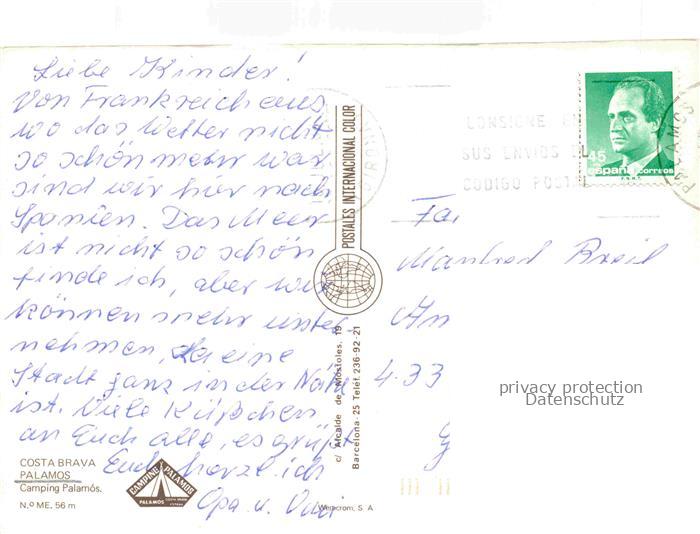 Liebe Kinder!
Von Frankreich aus,
wo das Wetter nicht
so schön mehr war
sind wir hier nach
Spanien. Das Meer
ist nicht so schön
finde ich, aber wir
können mehr unter-
nehmen, da eine
Stadt ganz in der Nähe
ist. Viele Küßchen
an Euch alle, es grüßt
Euch herzlich
Opa u. Omi
COSTA BRAVA
PALAMOS
Camping Palamós.
N.º ME. 56 m
CAMPING PALAMOS
PALAMOS
POSTALES INTERNACIONAL COLOR
c/ Alcalde de Móstoles, 19
Barcelona-25 Teléf. 236-92-21
S. A.
CONSIGNE EN
SUS ENVIOS EL
CODIGO POSTAL
PALAMOS
45
españa correos
Fa.
Manfred
An
4.33
privacy protection
Datenschutz